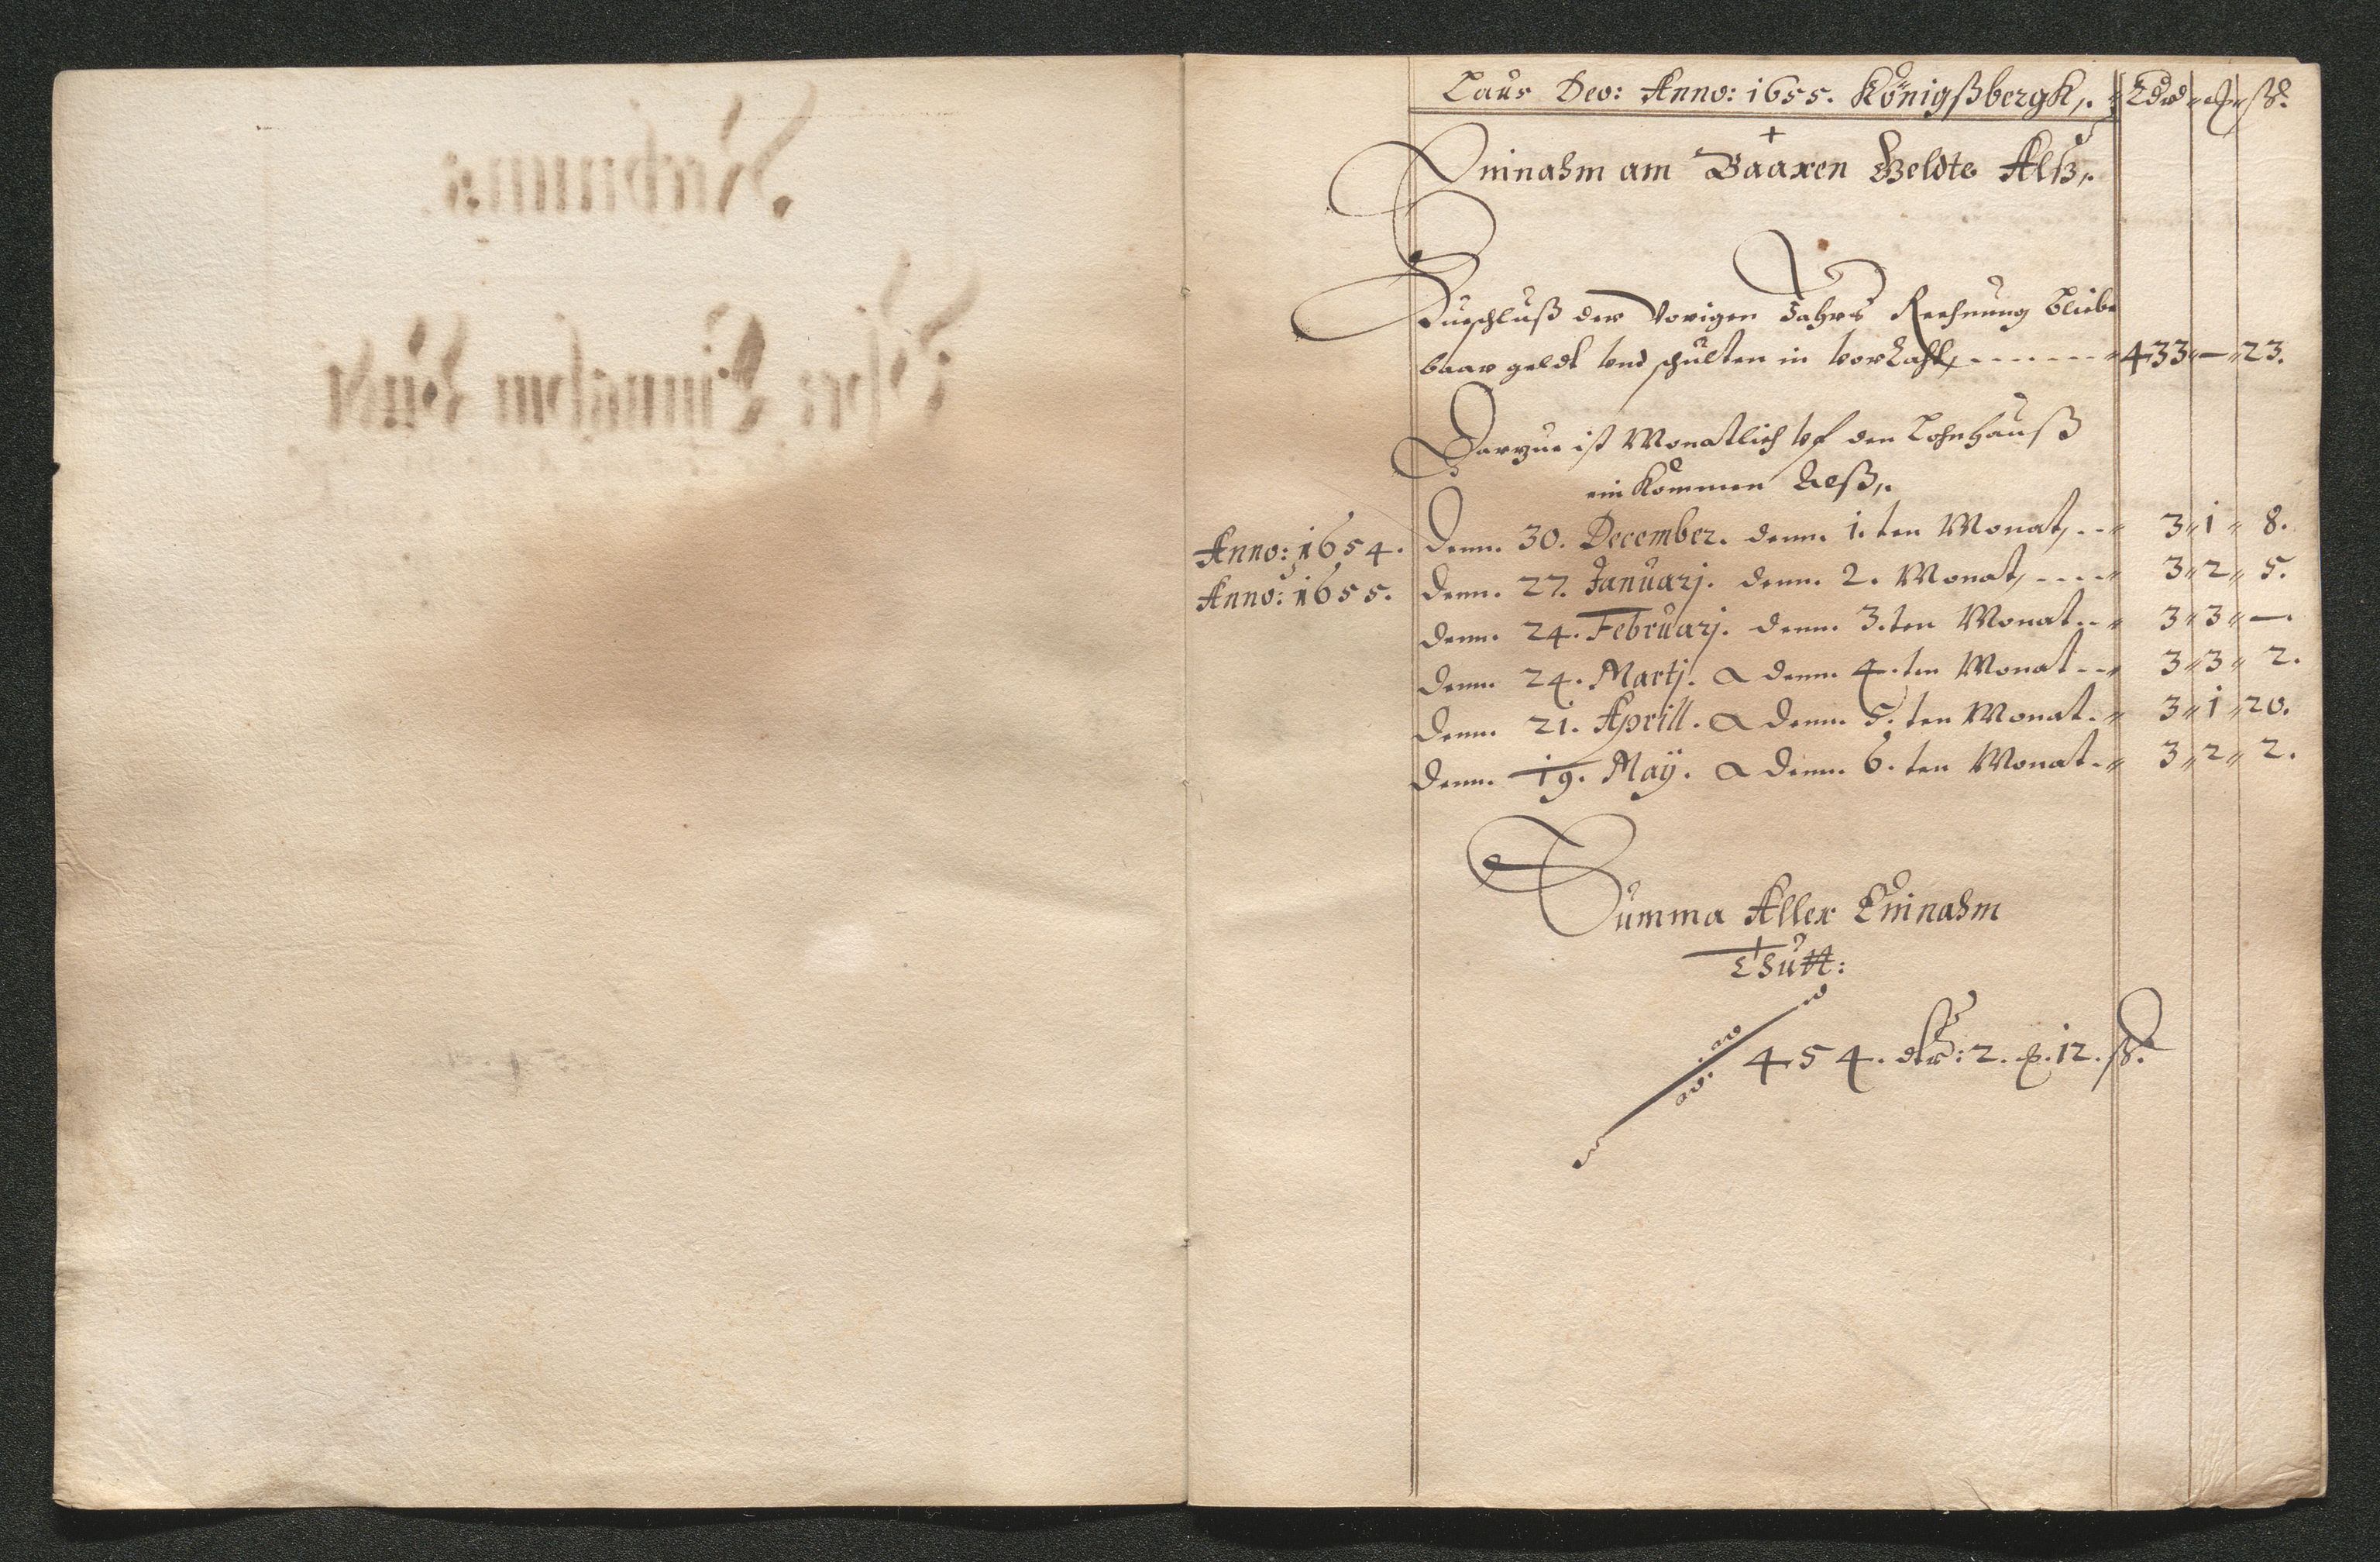 Laus Deo: Anno: 1655. Königßbergk,.
Einnahm am Baaren Geldte Alß,.
Zueschluß der Vorigen Jahrs Rechnung bliebe
baar geldt vnd schulten in vorraht, 433 — 23.
Darzue ist Monatlich vf den Lohnhauß
ein Kommen Alß,.
Anno: 1654. Denn. 30. December. denn. 1.ten Monat, 3 1 8.
Anno: 1655. Denn. 27. Januarj. denn. 2. Monat, 3 2 5.
Denn. 24. Februarj. denn. 3.ten Monat 3 3 —.
Denn. 24. Martj. denn. 4.ten Monat 3 3 2.
Denn. 21. Aprill. denn. 5.ten Monat 3 1 20.
Denn. 19. Maÿ. denn. 6.ten Monat 3 2 2.
Summa Aller Einnahm
Thutt:
454. 2. 12. ß.